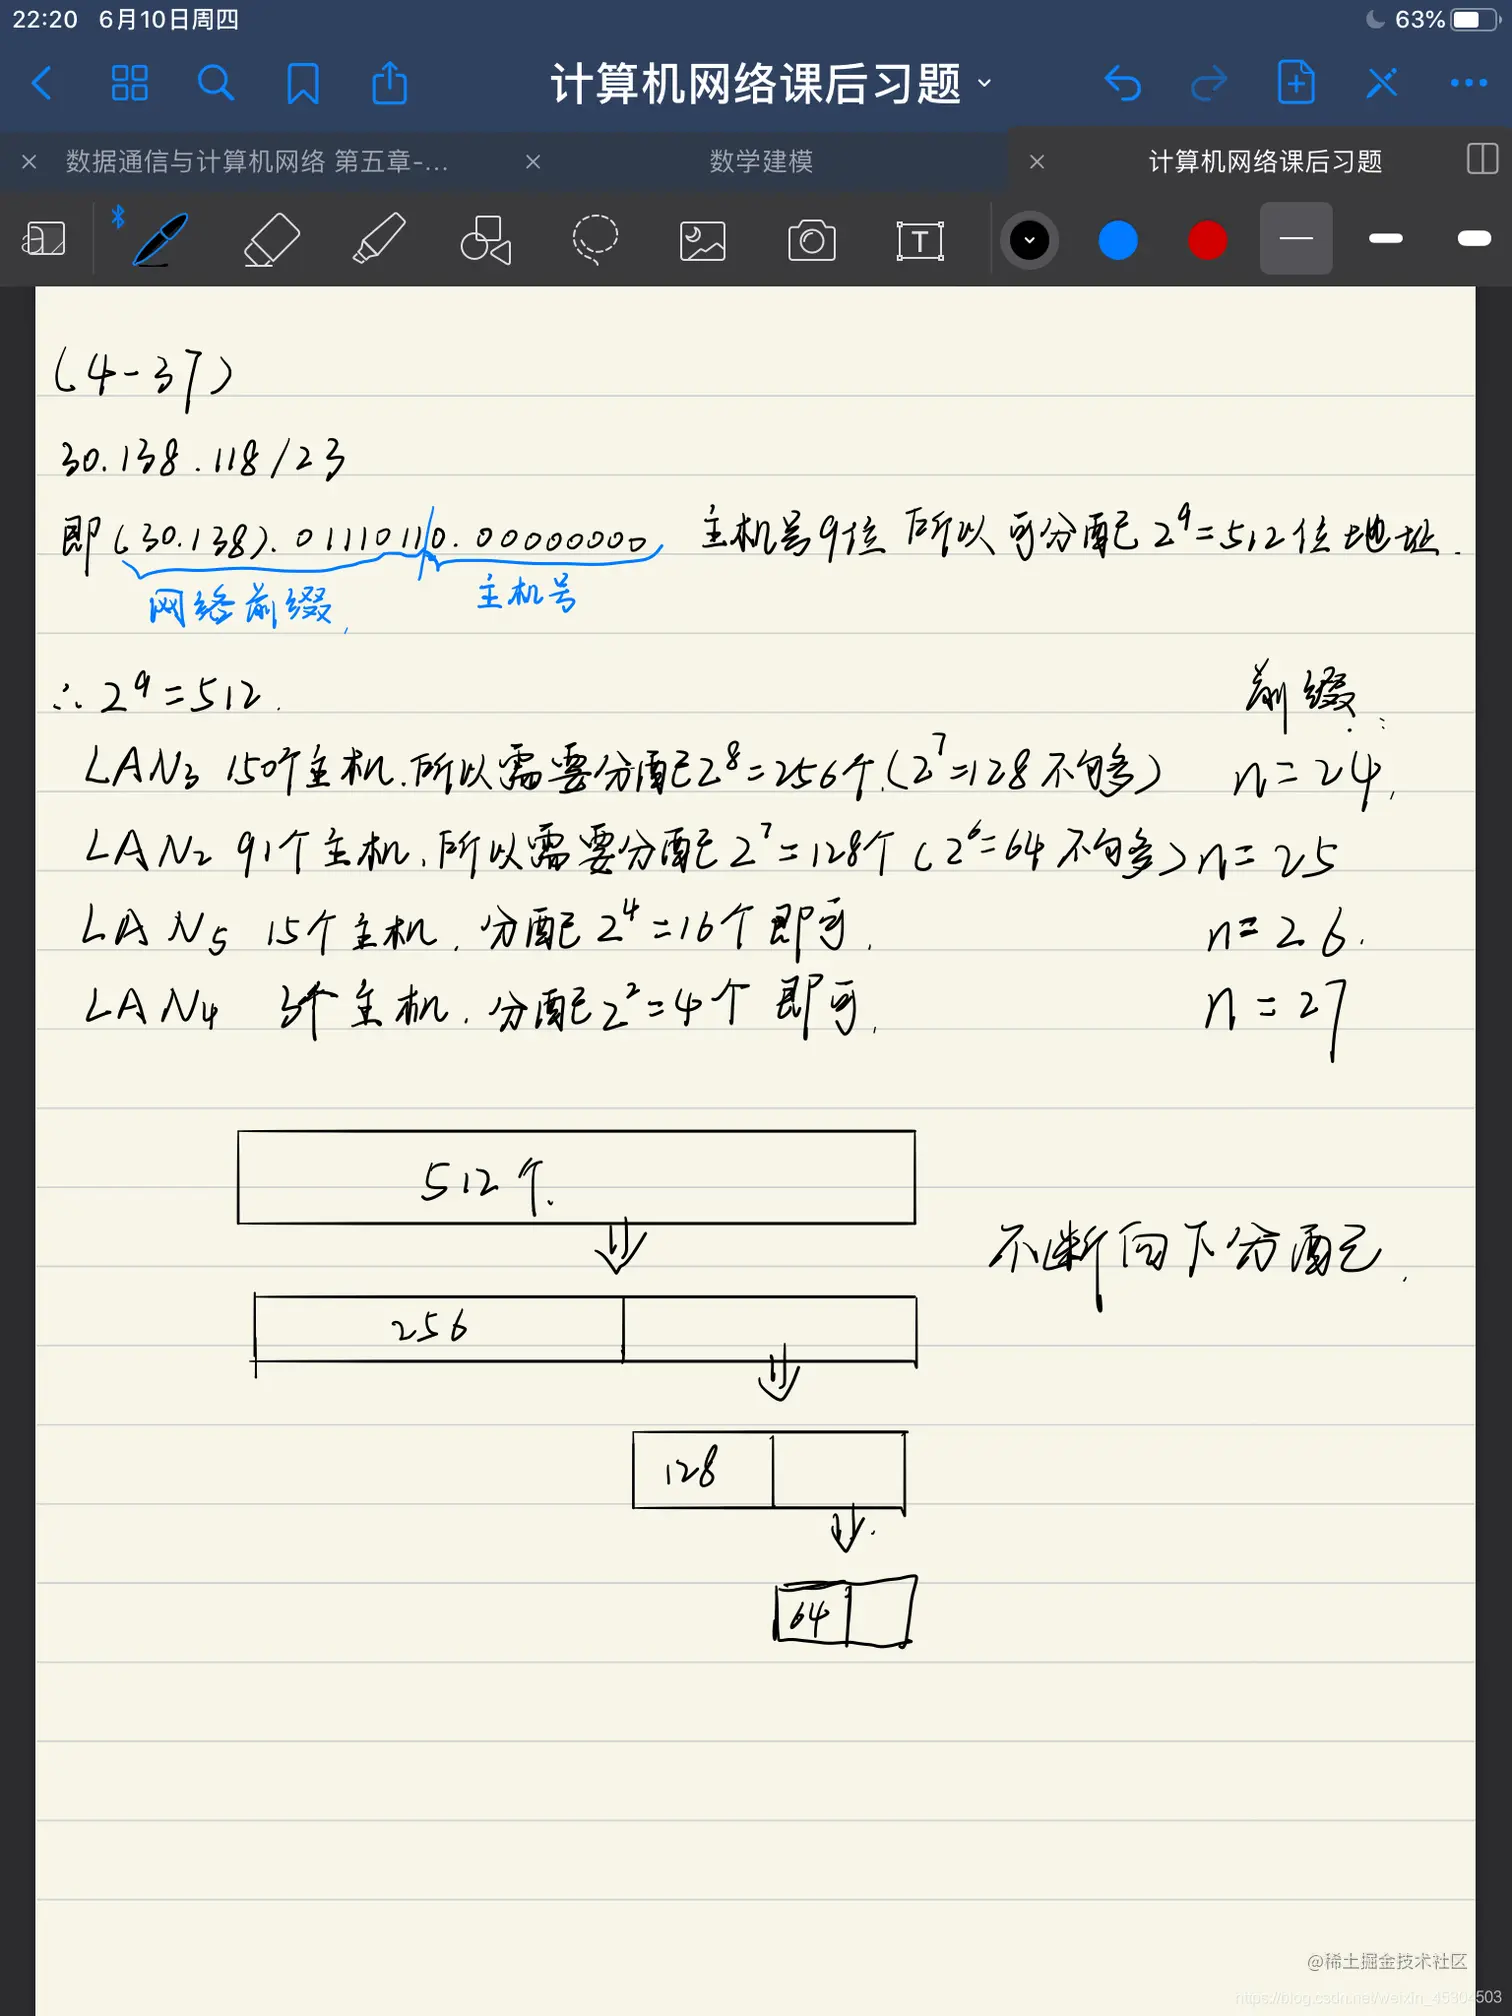 22:20 6月10日周四
63%
计算机网络课后习题
数据通信与计算机网络 第五章-...
数学建模
计算机网络课后习题
T
(4-37)
30.138.118/23
即(30.138).01110110.00000000 主机号9位 所以可分配2⁹=512位地址.
网络前缀, 主机号
∴ 2⁹=512.
前缀:
LAN3 150个主机.所以需要分配2⁸=256个.(2⁷=128不够多) n=24,
LAN2 91个主机,所以需要分配2⁷=128个(2⁶=64不够多) n=25
LAN5 15个主机,分配2⁴=16个即可, n=26.
LAN4 3个主机.分配2²=4个即可, n=27
512个.
不断向下分配.
256
128
64
@稀土掘金技术社区